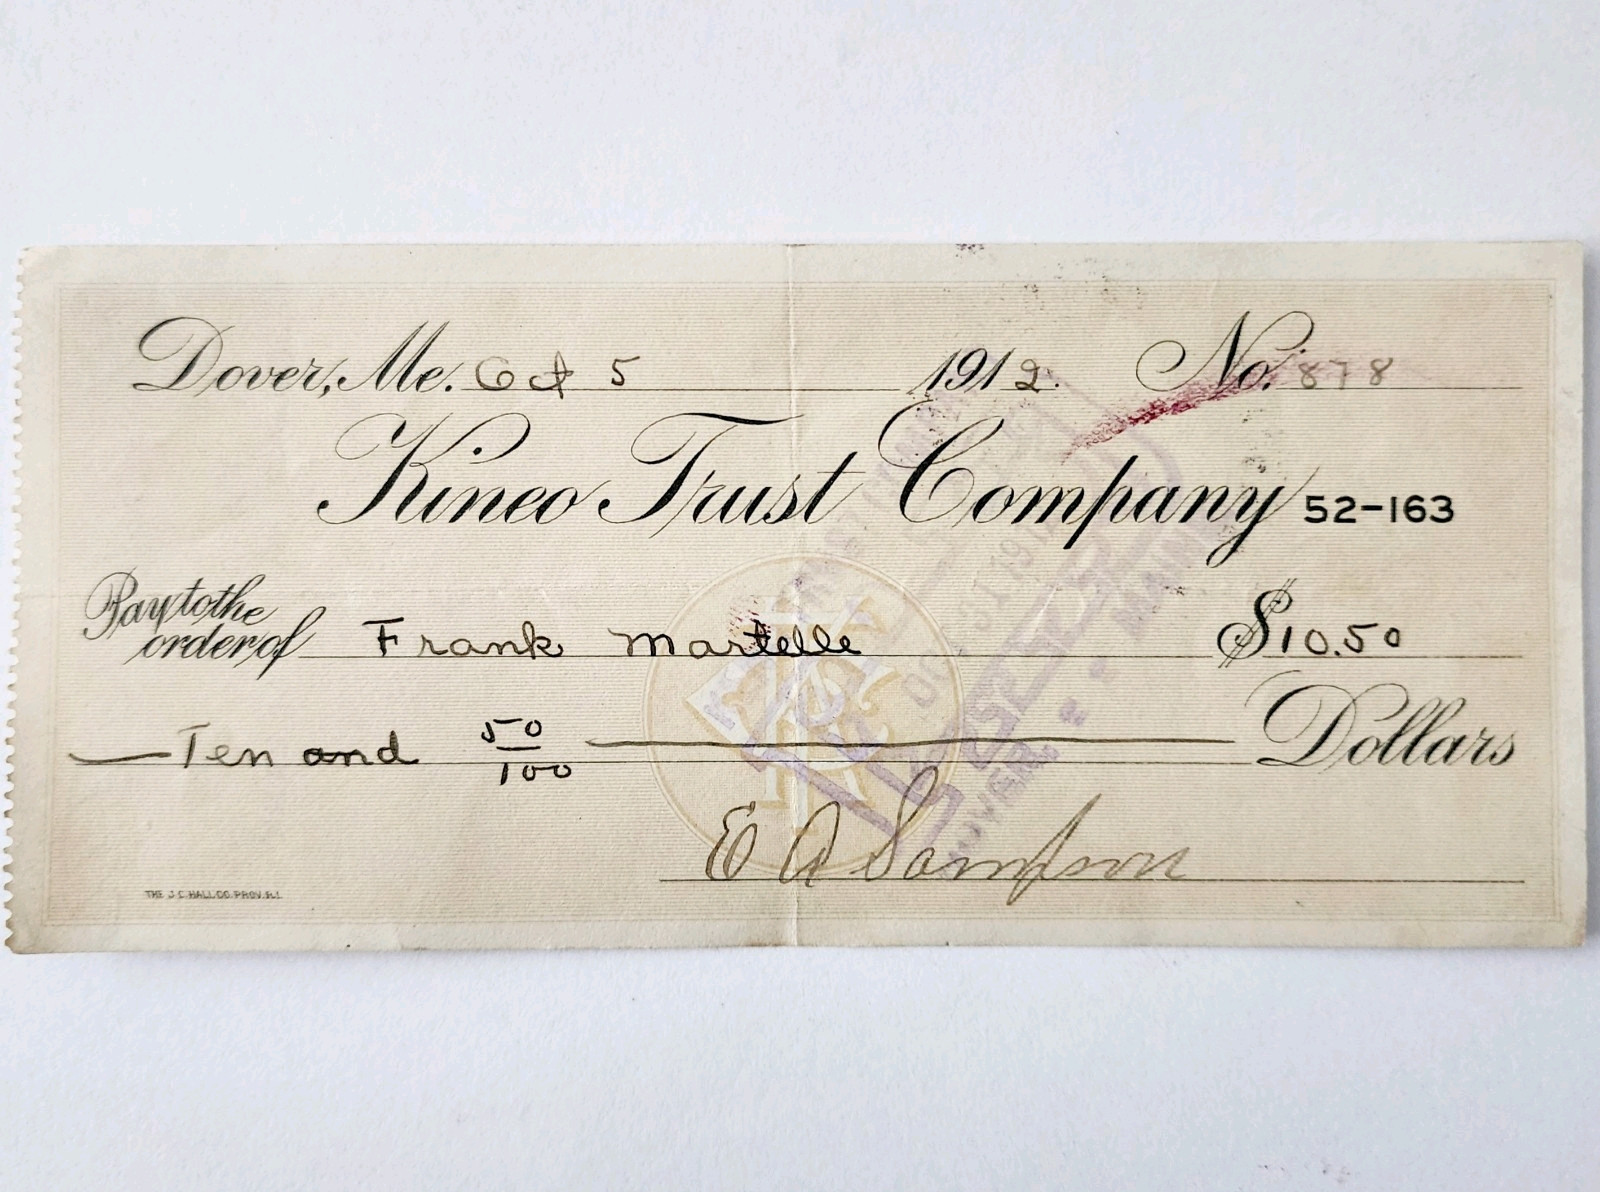 Dover, Me. Oct 5 1912. No. 878
Kineo Trust Company 52-163
Pay to the order of Frank Martelle $10.50
Ten and 50/100 Dollars
E A Sampson
THE J.C. HALL CO. PROV. R.I.